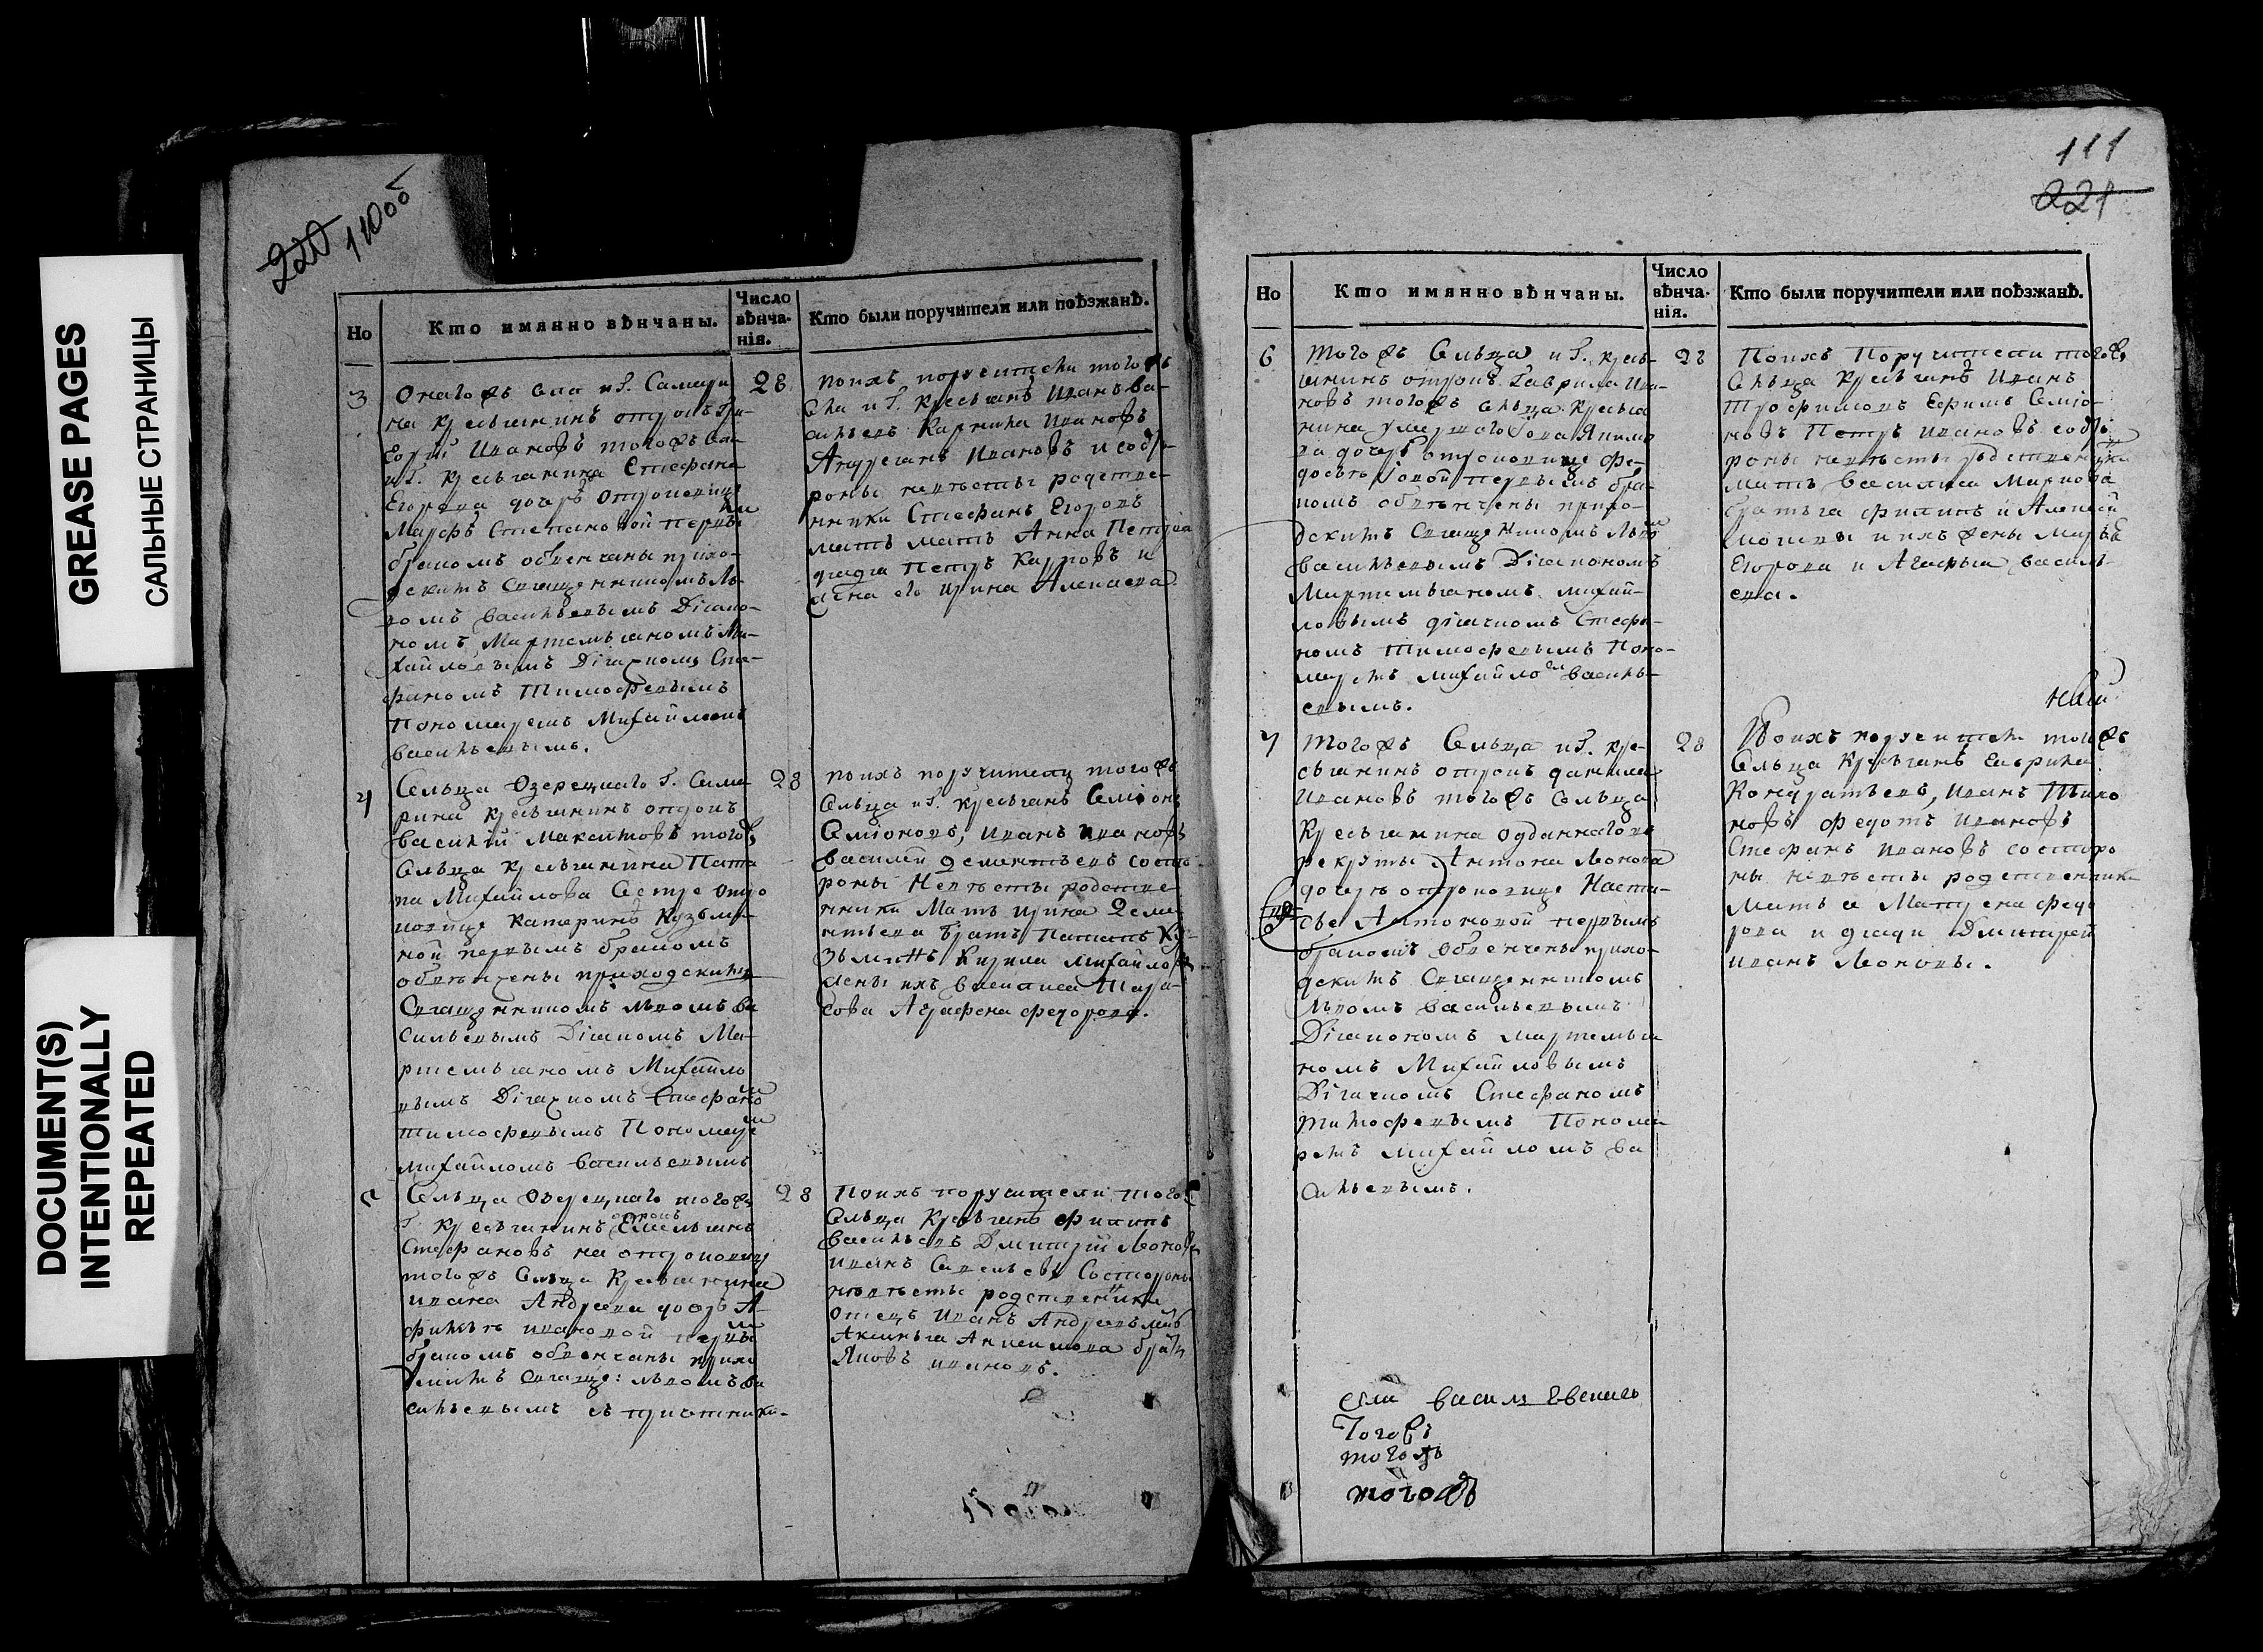 GREASE PAGES
САЛЬНЫЕ СТРАНИЦЫ
DOCUMENT(S)
INTENTIONALLY
REPEATED
220 110об
Но
Кто имянно вѣнчаны.
Число
вѣнча-
нія.
Кто были поручители или поѣзжанѣ.
3
Онагожъ
на крестьянинъ отрокъ Гри-
горій Ивановъ тогожъ
крестьянина Стефана
Егорова дочерѣ отроковице
Марфѣ Степановой первы
бракомъ обвенчаны прихо-
дскимъ Священникомъ Ль-
вомъ Васильевымъ Діако-
номъ Мартемьяномъ Ми-
хайловымъ Дьячкомъ Сте-
фаномъ Тимофевымъ
Пономаремъ Михайломъ
Васильевымъ.
28
Поихъ поручители тогожъ
крестьянѣ Иванъ Ва-
сильевъ Карнила Ивановъ
Андреянъ Ивановъ и состо-
роны невѣсты родстве-
нники Стефанъ Егоровъ
мать мать Анна Петрова
дядя Петръ Карповъ и
жена его Ирина Алексеева
4
Сельца Озерецкаго Г. Сама-
рина крестьянинъ отрокъ
Василій Максимовъ тогожъ
Сельца крестьянина Пота-
па Михайлова Сестре отро
ковице Катеринѣ Кузьми-
ной первымъ бракомъ
обвѣнчены приходскимъ
Священникомъ Львомъ Ва
сильевымъ Діакономъ Ма-
ртемьяномъ Михайло
вымъ Діачкомъ Стефаномъ
Тимофевымъ Пономаремъ
Михайломъ Васильевымъ
28
Поихъ поручители тогожъ
Сельца и Г. крестьянѣ Семіонъ
Семіоновъ, Иванъ Ивановъ
Василей Дементьевъ состо-
роны Невѣсты родстве-
нники Мать Ирина Деме-
нтьева братъ Потапъ Ку-
зьминъ Кирила Михайловъ
жены ихъ Василиса Тара-
сова Аграфена Федорова.
5
Сельца Озерецкаго тогожъ
Г. крестьянинъ отрокъ Емельянъ
Стефановъ на отроковице
тогожъ Сельца Крестьянина
Ивана Андреева дочерѣ А-
фимьѣ Ивановой первымъ
бракомъ обвенчаны прихо
дскимъ Священ: Львомъ Ва
сильевымъ съ причтники-
28
Поихъ поручители тогожъ
Сельца Крестьянѣ Филипъ
Васильевъ Дмитрій Леоновъ
Иванъ Савельевъ Состороны
невѣсты родственники
отецъ Иванъ Андреевъ
Аксинья Анисимова братъ
Яковъ Ивановъ.
111
221
Но
Кто имянно вѣнчаны.
Число
вѣнча-
нія.
Кто были поручители или поѣзжанѣ.
6
Тогожъ Сельца и Г. кресть-
янинъ отрокъ Гаврила Ива-
новъ тогожъ сельца крестья
нина умершого
дочерѣ отроковице Фе-
досьѣ первымъ бра-
комъ обвѣнчены прихо-
дскимъ Священникомъ Львомъ
Васильевымъ Діакономъ
Мартемьяномъ Михай-
ловымъ діачкомъ Стефа-
номъ Тимофевымъ Поно-
маремъ Михайломъ Василь-
евымъ.
28
Поихъ Поручители тогожъ
Сельца Крестьянѣ Иванъ
Трофимовъ Ефимъ Семіо-
новъ Петръ Ивановъ состо
роны невѣсты родственники
мать Василиса Маркова
братья Филипъ и Алексей
и ихъ жены Марья
Егорова и Агафья Василь-
ева.
7
Тогожъ Сельца и Г. кре-
стьянинъ отрокъ Данила
Ивановъ тогожъ Сельца
Крестьянина отданнаго въ
рекруты Антона Леонова
дочерѣ отроковице Наста-
сье Антоновой первымъ
бракомъ обвенчены прихо-
дскимъ Священникомъ
Львомъ Васильевымъ
Діакономъ Мартемья
номъ Михайловымъ
Діачкомъ Стефаномъ
Тимофевымъ Понома-
ремъ Михайломъ Ва
сильевымъ.
28
Поихъ поручители тогожъ
Сельца Крестьянѣ Гаврила
Кондратьевъ, Иванъ Тихо
новъ Федотъ Ивановъ
Стефанъ Ивановъ состоро
ны невѣсты родственники
Мать ея Матрена Федо
рова и дяди Дмитрей
Иванъ Леоновы.
тогожъ
тогожъ